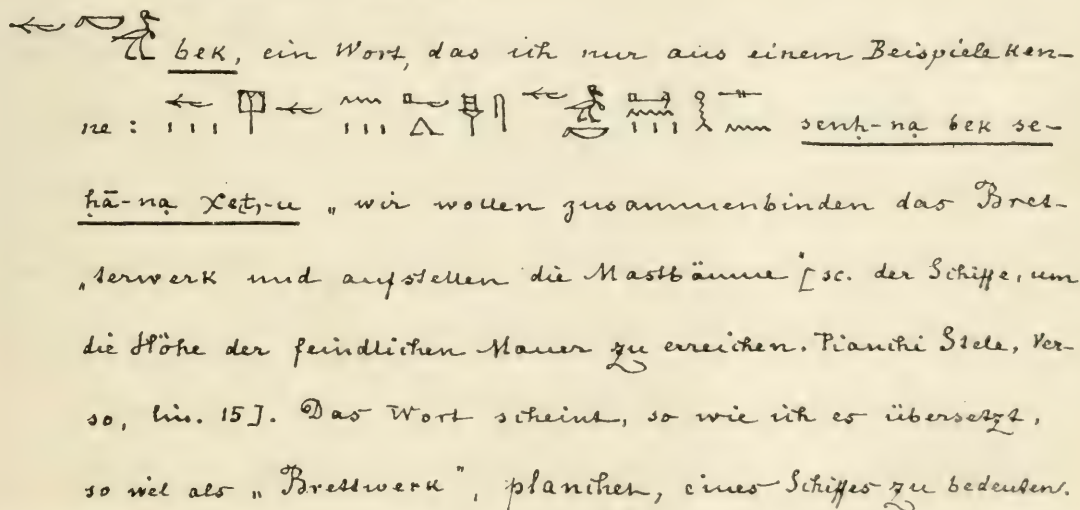 bek, ein Wort, das ich nur aus einem Beispiele ken-
ne : senḥ-na bek se-
ḥā-na χet-u „wir wollen zusammenbinden das Bret-
„terwerk und aufstellen die Mastbäume“ [sc. der Schiffe, um
die Höhe der feindlichen Mauer zu erreichen. Pianchi Stele, Ver-
so, lin. 15]. Das Wort scheint, so wie ich es übersetzt,
so viel als „Brettwerk“, planches, eines Schiffes zu bedeuten.